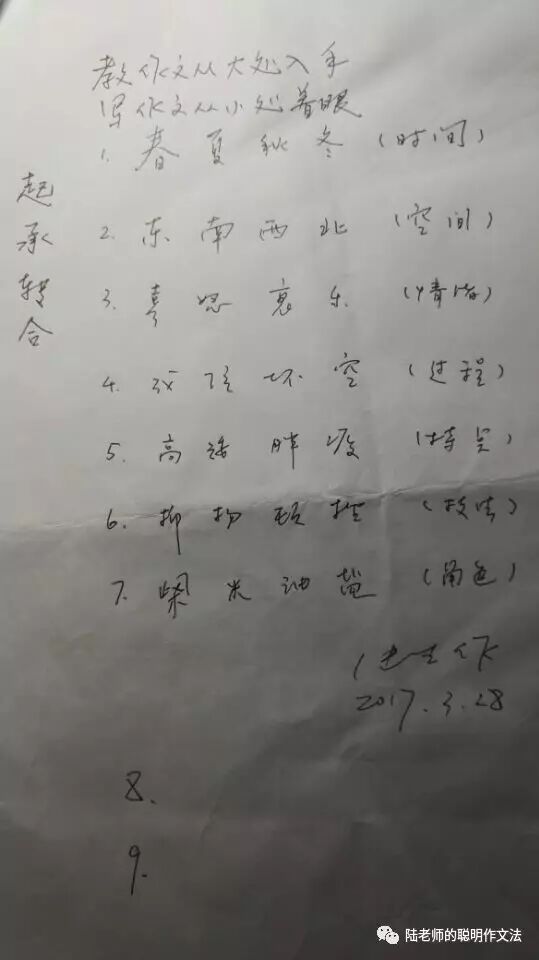 教作文从大处入手
写作文从小处着眼
起承转合
1. 春 夏 秋 冬 (时间)
2. 东 南 西 北 (空间)
3. 喜 怒 哀 乐
4. 成 住 坏 空 (过程)
5. 高 矮 胖 瘦
6. 抑 扬 顿 挫 (技法)
7. 柴 米 油 盐 (角色)
作
2017.3.28
8.
9.
陆老师的聪明作文法